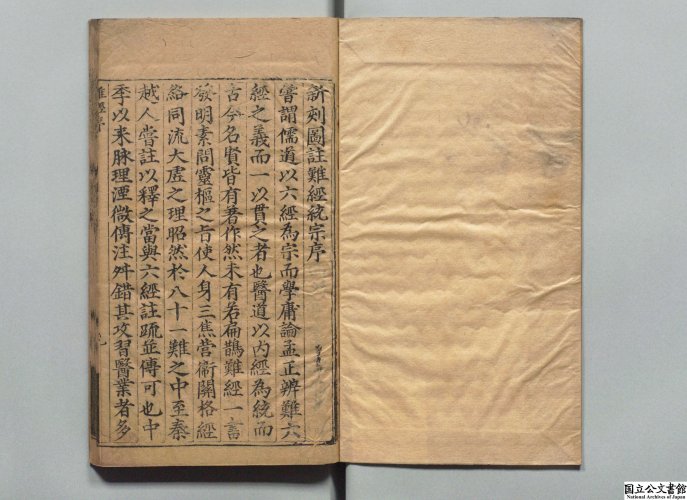 新刻圖註難經統宗序
嘗謂儒道以六經為宗而學庸論孟正辨難六
經之義而一以貫之者也醫道以内經為統而
古今名賢皆有著作然未有若扁鵲難經一書
發明素問靈樞之旨使人身三焦營衛關格經
絡同流大虛之理昭然於八十一難之中至秦
越人嘗註以釋之當與六經註䟽並傳可也中
季以来脉理湮微傳注舛錯其攻習醫業者多
難經序
国立公文書館
National Archives of Japan